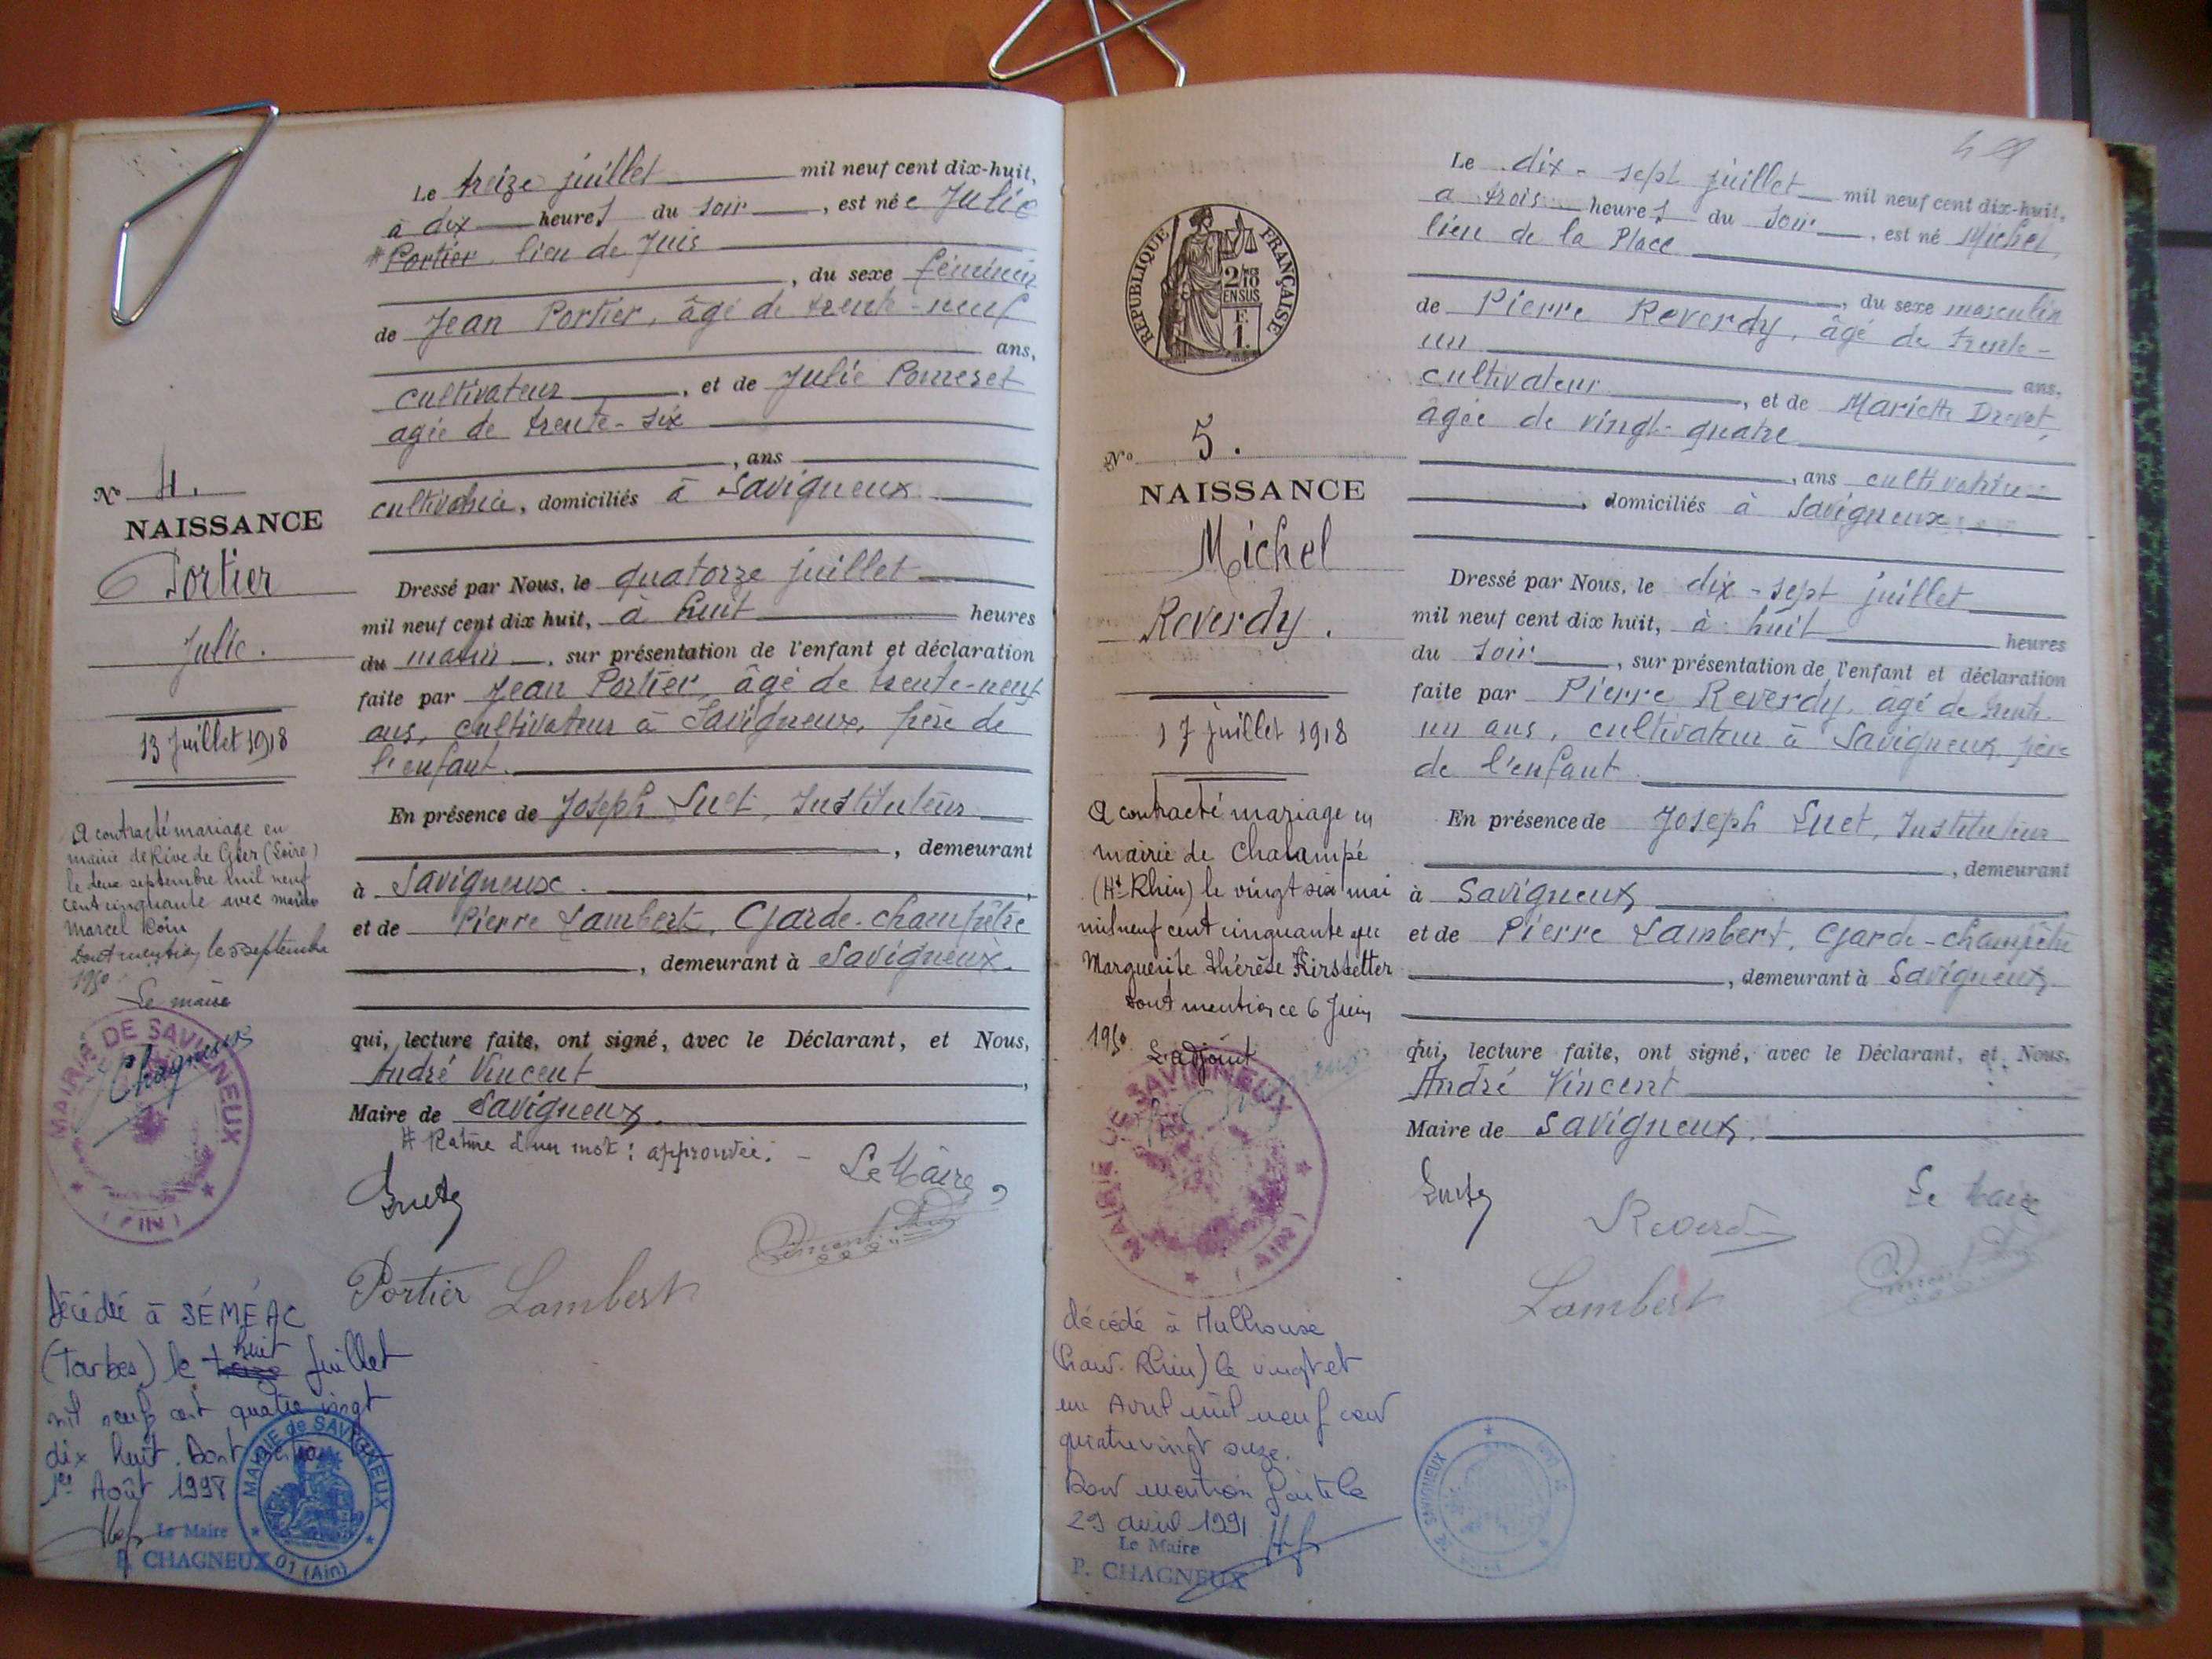 Le treize juillet mil neuf cent dix-huit,
à dix heures du soir, est née Julie
# Portier, lieu de Juis
, du sexe féminin
de Jean Portier, âgé de trente-neuf
ans,
cultivateur, et de Julie
agée de trente-six
, ans
cultivatrice, domiciliés à Savigneux
Dressé par Nous, le quatorze juillet
mil neuf cent dix huit, à huit heures
du matin, sur présentation de l'enfant et déclaration
faite par Jean Portier, âgé de trente-neuf
ans, cultivateur à Savigneux, père de
l'enfant.
En présence de Joseph Suet, Instituteur
, demeurant
à Savigneux.
et de Pierre Lambert, Garde-champêtre
, demeurant à Savigneux.
qui, lecture faite, ont signé, avec le Déclarant, et Nous,
André Vincent,
Maire de Savigneux.
# Rature d'un mot : approuvée. -
Le Maire,
Suet
Portier Lambert
No 4.
NAISSANCE
Portier
Julie.
13 Juillet 1918
A contracté mariage en
mairie de Rive de Gier (Loire)
le deux septembre mil neuf
cent cinquante avec
Marcel
Dont mention le 5 septembre
1950
Le maire
Chagneux
MAIRIE DE SAVIGNEUX
(AIN)
Décédée à SÉMÉAC
huit
(Tarbes) le treize juillet
mil neuf cent quatre vingt
dix huit. Dont mention
1er Août 1998
Le Maire
P. CHAGNEUX
MAIRIE de SAVIGNEUX
01 (Ain)
Le dix-sept juillet mil neuf cent dix-huit,
a trois heures du soir, est né Michel,
lieu de la Place
, du sexe masculin
de Pierre Reverdy, âgé de trente-
un
ans,
cultivateur, et de Mariette Drevet,
âgée de vingt-quatre
, ans cultivatrice
, domiciliés à Savigneux
Dressé par Nous, le dix-sept juillet
mil neuf cent dix huit, à huit heures
du soir, sur présentation de l'enfant et déclaration
faite par Pierre Reverdy, âgé de trente
un ans, cultivateur à Savigneux, père
de l'enfant.
En présence de Joseph Suet, Instituteur
, demeurant
à Savigneux
et de Pierre Lambert, Garde-champêtre
, demeurant à Savigneux.
qui, lecture faite, ont signé, avec le Déclarant, et Nous,
André Vincent
Maire de Savigneux.
Suet
Reverdy
Le Maire
Lambert
REPUBLIQUE FRANÇAISE
2/10
EN SUS
F.
1.
No 5.
NAISSANCE
Michel
Reverdy.
17 juillet 1918
A contracté mariage en
mairie de Chalampé
(Ht Rhin) le vingt six mai
mil neuf cent cinquante avec
Marguerite Thérèse Kirstetter
dont mention ce 6 Juin
1950.
L'adjoint
MAIRIE DE SAVIGNEUX
(AIN)
décédé à Mulhouse
(haut-Rhin) le vingt et
un Avril mil neuf cent
quatre vingt onze.
Dont mention faite le
29 avril 1991
Le Maire
P. CHAGNEUX
DE SAVIGNEUX